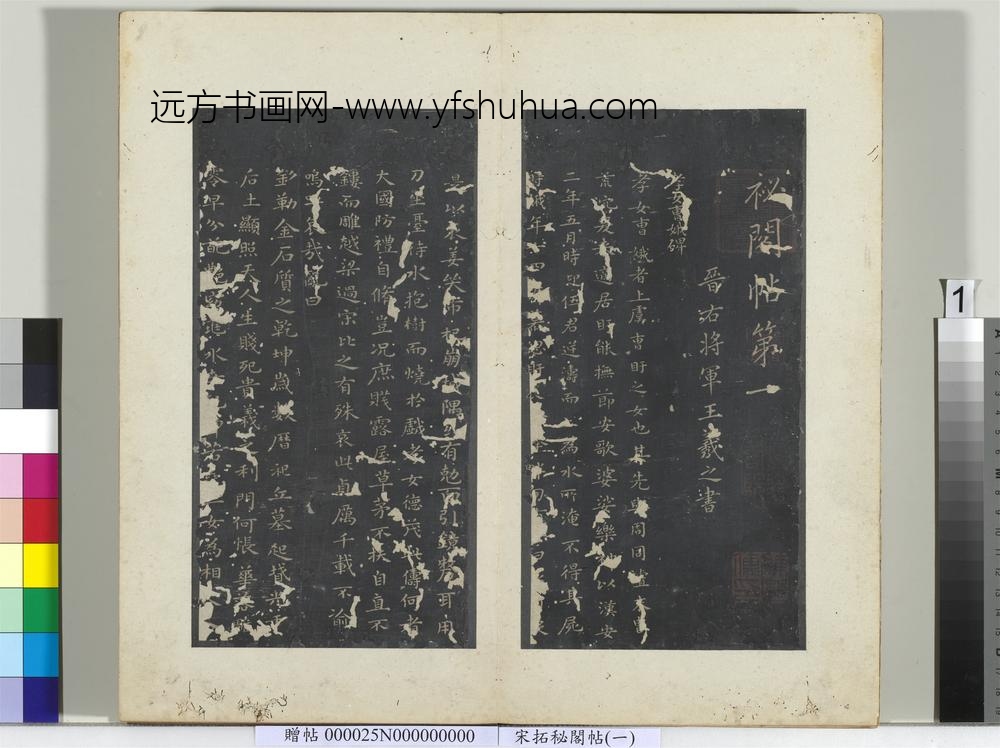 远方书画网-www.yfshuhua.com
祕閣帖第一
晉右將軍王羲之書
孝女曹娥碑
孝女曹娥者上虞曹盱之女也其先與周同
荒 居盱能撫節安歌婆娑樂 以漢安
二年五月時迎伍君逆濤而 為水所淹不得其屍
時娥年 四
是以 哀姜 市杞崩 隅 有 引鏡 耳用
刀坐臺待水抱樹而燒於戲孝女德茂此儔何者
大國防禮自脩豈况庶賤露屋草茅不扶自直不
鏤而雕越梁過宋比之有殊哀此貞厲千載不渝
嗚 哀哉 曰
銘勒金石質之乾坤歲數曆祀丘墓起墳光
后土顯照天人生賤死貴義 利門何悵華
零早分 水 女為相
1
贈帖 000025N000000000
宋拓秘閣帖(一)